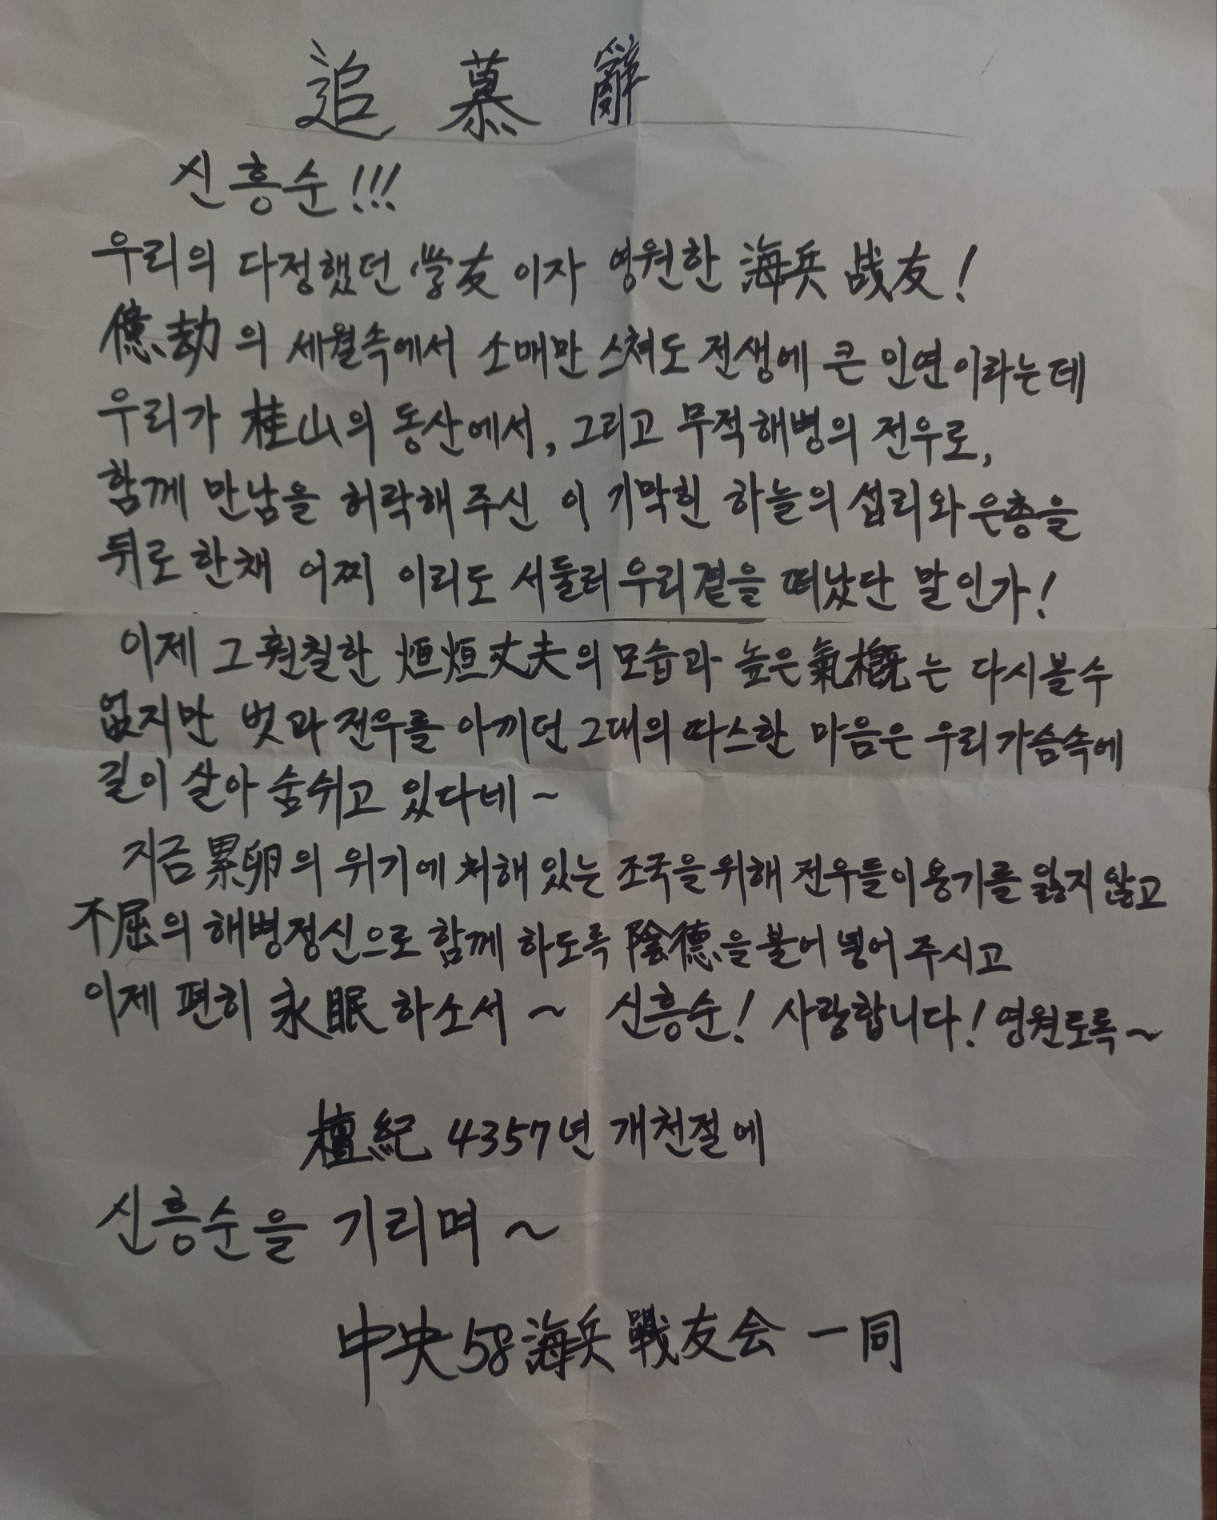 追慕辭
신흥순!!!
우리의 다정했던 学友이자 영원한 海兵 战友!
億劫의 세월속에서 소매만 스쳐도 전생에 큰 인연이라는데
우리가 桂山의 동산에서, 그리고 무적해병의 전우로,
함께 만남을 허락해 주신 이 기막힌 하늘의 섭리와 은총을
뒤로 한채 어찌 이리도 서둘러 우리곁을 떠났단 말인가!
이제 그 훤칠한 桓桓丈夫의 모습과 높은 氣槪는 다시볼수
없지만 벗과 전우를 아끼던 그대의 따스한 마음은 우리가슴속에
깊이 살아 숨쉬고 있다네~
지금 累卵의 위기에 처해 있는 조국을 위해 전우들이 용기를 잃지 않고
不屈의 해병정신으로 함께 하도록 陰德을 불어 넣어 주시고
이제 편히 永眠 하소서~ 신흥순! 사랑합니다! 영원토록~
檀紀 4357년 개천절에
신흥순을 기리며~
中央58海兵戰友会 一同